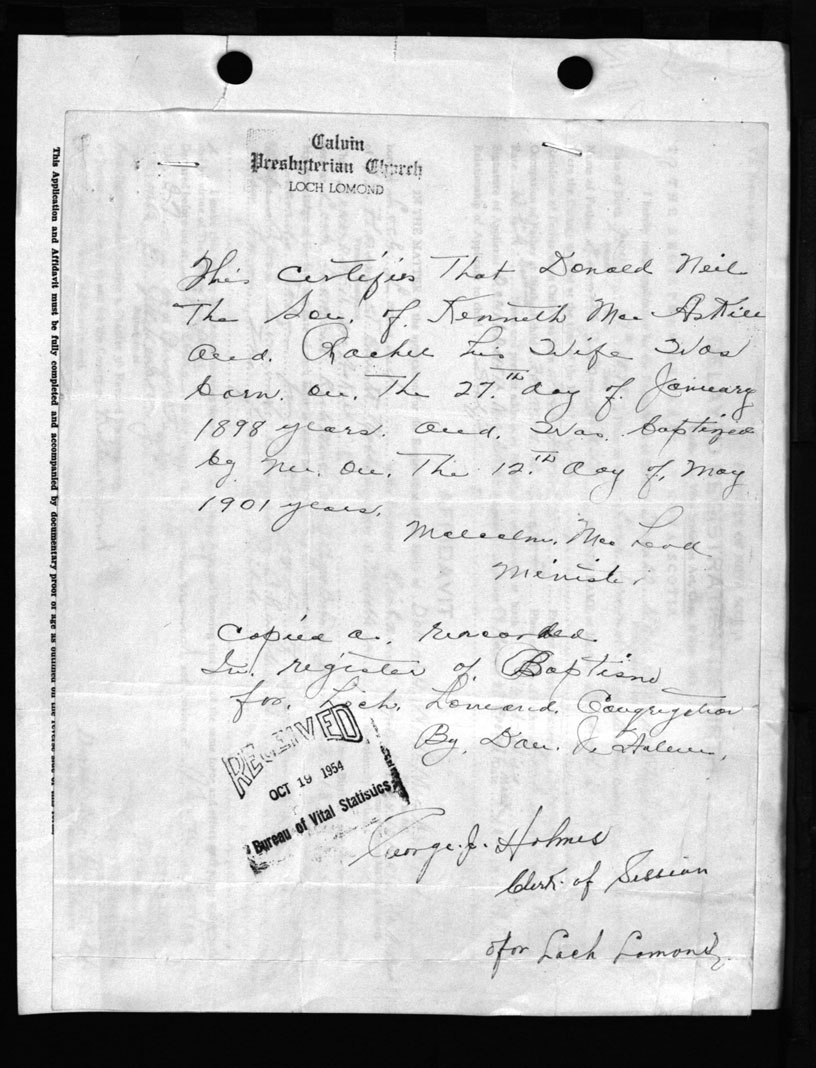 Calvin
Presbyterian Church
LOCH LOMOND
This Certifies That Donald Neil
The Son. of. Kenneth Mac Askill
and. Rachel his Wife Was
born. on. The 27.th day of. January
1898 years. and. Was. baptized
by me. on. The 12.th day of. May
1901 years.
Malcolm. Mac Leod
Minister
Copied as. recorded
In. register of. Baptism
for. Loch. Lomond. Congregation
By. Dan. J. Holmes.
RECEIVED
OCT 19 1954
Bureau of Vital Statistics
George. J. Holmes
Clerk. of Session
for Loch Lomond.
This Application and Affidavit must be fully completed and accompanied by documentary proof of age as outlined on the reverse side of this